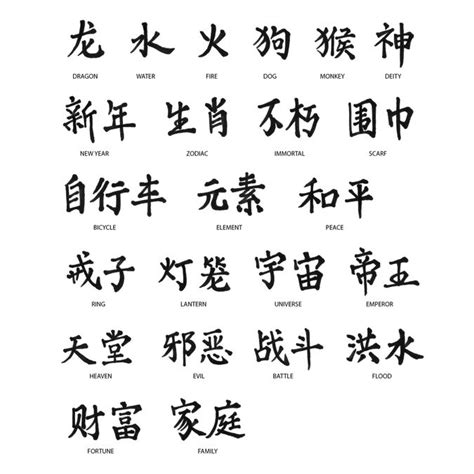 龙 水 火 狗 猴 神
DRAGON WATER FIRE DOG MONKEY DEITY
新年 生肖 不朽 围巾
NEW YEAR ZODIAC IMMORTAL SCARF
自行车 元素 和平
BICYCLE ELEMENT PEACE
戒子 灯笼 宇宙 帝王
RING LANTERN UNIVERSE EMPEROR
天堂 邪恶 战斗 洪水
HEAVEN EVIL BATTLE FLOOD
财富 家庭
FORTUNE FAMILY